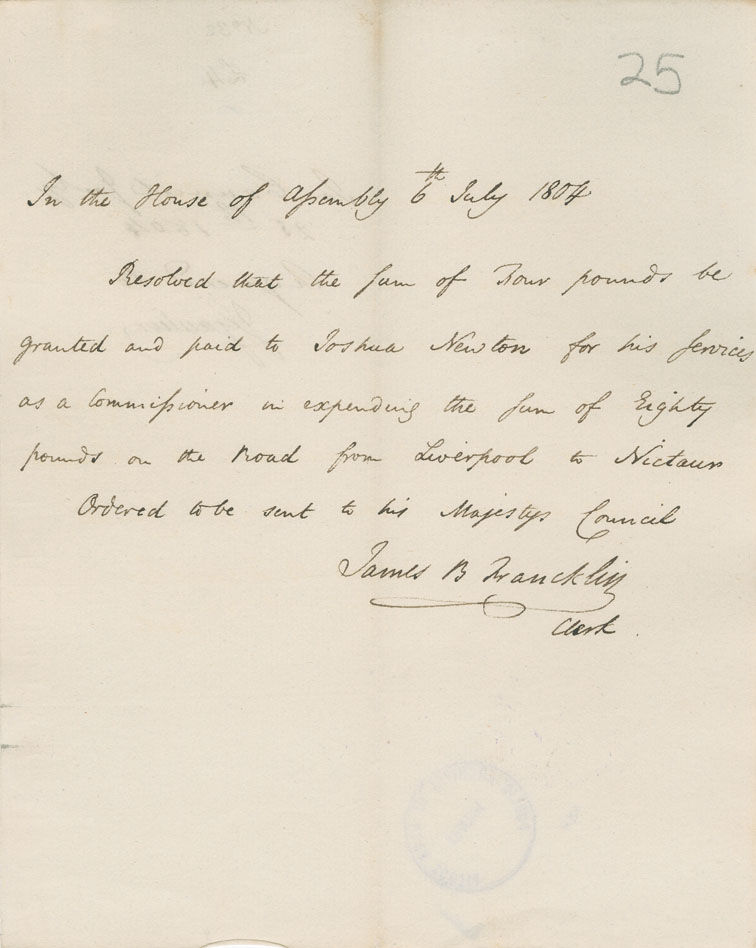 25
In the House of Assembly 6th July 1804
Resolved that the sum of Four pounds be
granted and paid to Joshua Newton for his services
as a Commissioner in expending the sum of Eighty
pounds on the Road from Liverpool to Nictaux
Ordered to be sent to his Majestys Council
James B Francklin
Clerk.